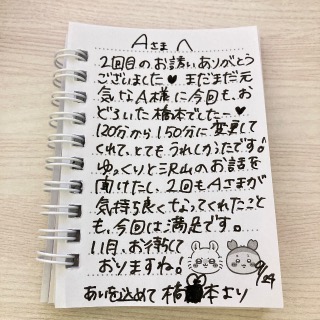 Aさま へ
2回目のお誘いありがとう
ございました♥ まだまだ元
気なA様に今回も、お
どろいた橋本でしたー♥
120分から150分に変更して
くれて、とてもうれしかったです！
ゆっくりと沢山のお話を
聞けたし、2回もAさまが
気持ち良くなってくれたこと
も、今回は満足です。
11月、お待ちして
おりますね！
9/24
あいを込めて 橋本より